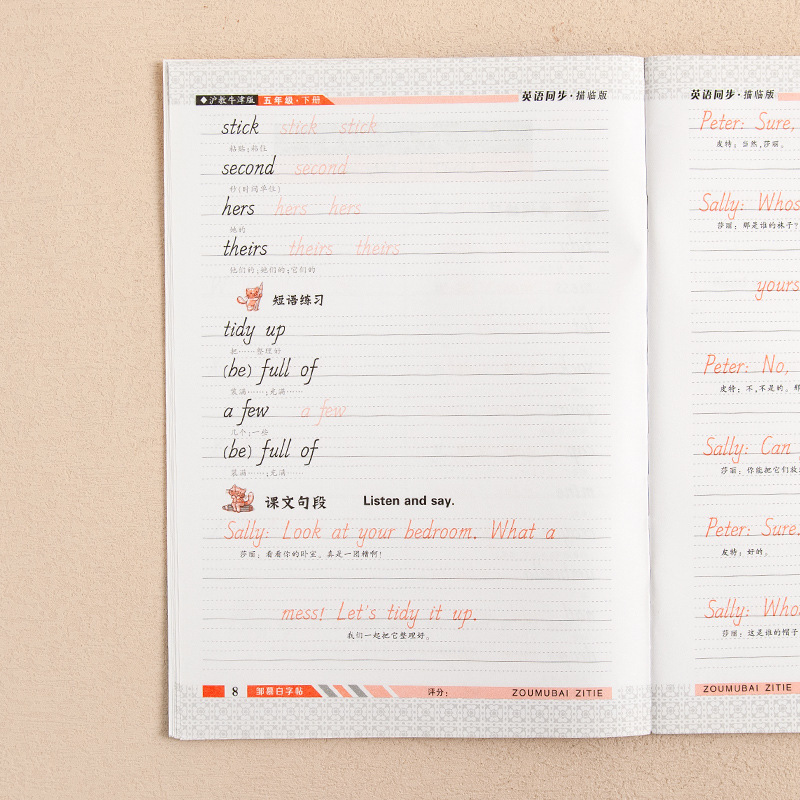 ◆沪教牛津版 五年级·下册 英语同步·描临版
stick stick stick
粘贴;粘住
second second
秒(时间单位)
hers hers hers
她的
theirs theirs theirs
他们的;她们的;它们的
短语练习
tidy up
把……整理好
(be) full of
装满……;充满……
a few a few
几个;一些
(be) full of
装满……;充满……
课文句段 Listen and say.
Sally: Look at your bedroom. What a
莎丽:看看你的卧室。真是一团糟啊!
mess! Let's tidy it up.
我们一起把它整理好。
8 邹慕白字帖 评分: ZOUMUBAI ZITIE
英语同步·描临版
Peter: Sure,
皮特:当然,莎丽。
Sally: Whos
莎丽:那是谁的袜子?
yours
Peter: No,
皮特:不,不是的。那
Sally: Can
莎丽:你能把它们放
Peter: Sure.
皮特:好的。
Sally: Whos
莎丽:这是谁的帽子
ZOUMUBAI ZITIE